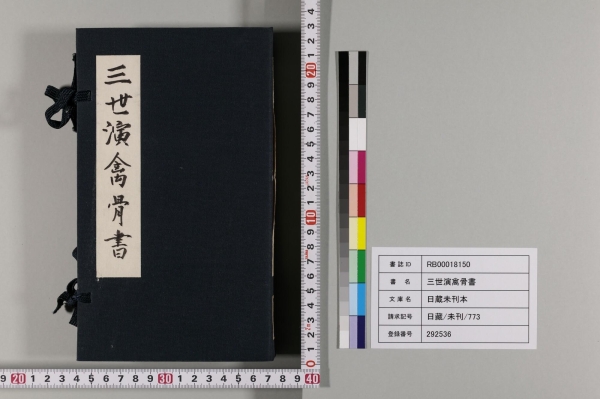 三世演禽骨書
書誌ID RB00018150
書名 三世演禽骨書
文庫名 日蔵未刊本
請求記号 日蔵/未刊/773
登録番号 292536
4 3 2 1 20 9 8 7 6 5 4 3 2 1 10 9 8 7 6 5 4 3 2 1 0
9 20 1 2 3 4 5 6 7 8 9 30 1 2 3 4 5 6 7 8 9 40